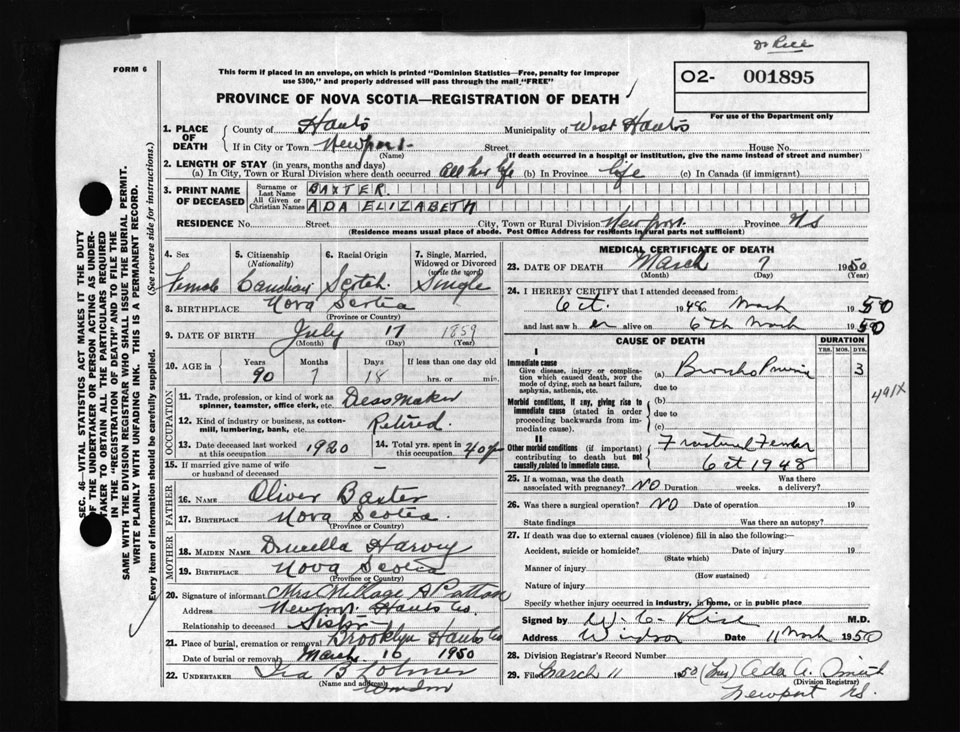 Dr Rice
FORM 6
This form if placed in an envelope, on which is printed "Dominion Statistics—Free, penalty for improper
use $300," and properly addressed will pass through the mail "FREE"
O2- 001895
PROVINCE OF NOVA SCOTIA—REGISTRATION OF DEATH
For use of the Department only
1. PLACE OF DEATH County of Hants Municipality of West Hants
If in City or Town Newport Street House No.
(Name) (If death occurred in a hospital or institution, give the name instead of street and number)
2. LENGTH OF STAY (in years, months and days)
(a) In City, Town or Rural Division where death occurred All her life (b) In Province life (c) In Canada (if immigrant)
3. PRINT NAME OF DECEASED Surname or Last Name BAXTER
All Given or Christian Names ADA ELIZABETH
RESIDENCE No. Street City, Town or Rural Division Newport Province NS
(Residence means usual place of abode. Post Office Address for residents in rural parts not sufficient)
4. Sex Female
5. Citizenship (Nationality) Canadian
6. Racial Origin Scotch
7. Single, Married, Widowed or Divorced (write the word) Single
8. BIRTHPLACE Nova Scotia
(Province or Country)
9. DATE OF BIRTH July 17 1859
(Month) (Day) (Year)
10. AGE in Years 90 Months 7 Days 18 If less than one day old hrs. or min.
OCCUPATION
11. Trade, profession, or kind of work as spinner, teamster, office clerk, etc. Dessmaker
12. Kind of industry or business, as cotton-mill, lumbering, bank, etc. Retired
13. Date deceased last worked at this occupation 1920
14. Total yrs. spent in this occupation 40 yrs
15. If married give name of wife or husband of deceased —
FATHER
16. NAME Oliver Baxter
17. BIRTHPLACE Nova Scotia
(Province or Country)
MOTHER
18. MAIDEN NAME Drucella Harvey
19. BIRTHPLACE Nova Scotia
(Province or Country)
20. Signature of informant Mrs Millage A Patton
Address Newport Hants Co.
Relationship to deceased Sister
21. Place of burial, cremation or removal Brooklyn Hants Co
Date of burial or removal March 10 1950
22. UNDERTAKER Ira B
(Name and address) Windsor
MEDICAL CERTIFICATE OF DEATH
23. DATE OF DEATH March 7 1950
(Month) (Day) (Year)
24. I HEREBY CERTIFY that I attended deceased from:
Oct. 1948 March 1950
and last saw her alive on 6th March 1950
CAUSE OF DEATH DURATION
YRS. MOS. DYS.
I
Immediate cause
Give disease, injury or complication which caused death, not the mode of dying, such as heart failure, asphyxia, asthenia, etc.
(a) Broncho Pneumonia 3
due to
491X
Morbid conditions, if any, giving rise to immediate cause (stated in order proceeding backwards from immediate cause).
(b)
due to
(c)
II
Other morbid conditions (if important) contributing to death but not causally related to immediate cause.
Fractured Femur
Oct 1948
25. If a woman, was the death associated with pregnancy? NO Duration weeks. Was there a delivery?
26. Was there a surgical operation? NO Date of operation 19
State findings Was there an autopsy?
27. If death was due to external causes (violence) fill in also the following:—
Accident, suicide or homicide? Date of injury 19
(State which)
Manner of injury
(How sustained)
Nature of injury
Specify whether injury occurred in industry, in home, or in public place
Signed by W. C. Rice M.D.
Address Windsor Date 11 March 1950
28. Division Registrar's Record Number
29. Filed March 11 1950 (Mrs) Ada A. Smith
(Division Registrar)
Newport NS.
SEC. 46—VITAL STATISTICS ACT MAKES IT THE DUTY
OF THE UNDERTAKER OR PERSON ACTING AS UNDER-
TAKER TO OBTAIN ALL THE PARTICULARS REQUIRED
IN THE "REGISTRATION OF DEATH" AND TO FILE THE
SAME WITH THE DIVISION REGISTRAR WHO SHALL ISSUE THE BURIAL PERMIT.
WRITE PLAINLY WITH UNFADING INK. THIS IS A PERMANENT RECORD.
Every item of information should be carefully supplied. (See reverse side for instructions.)